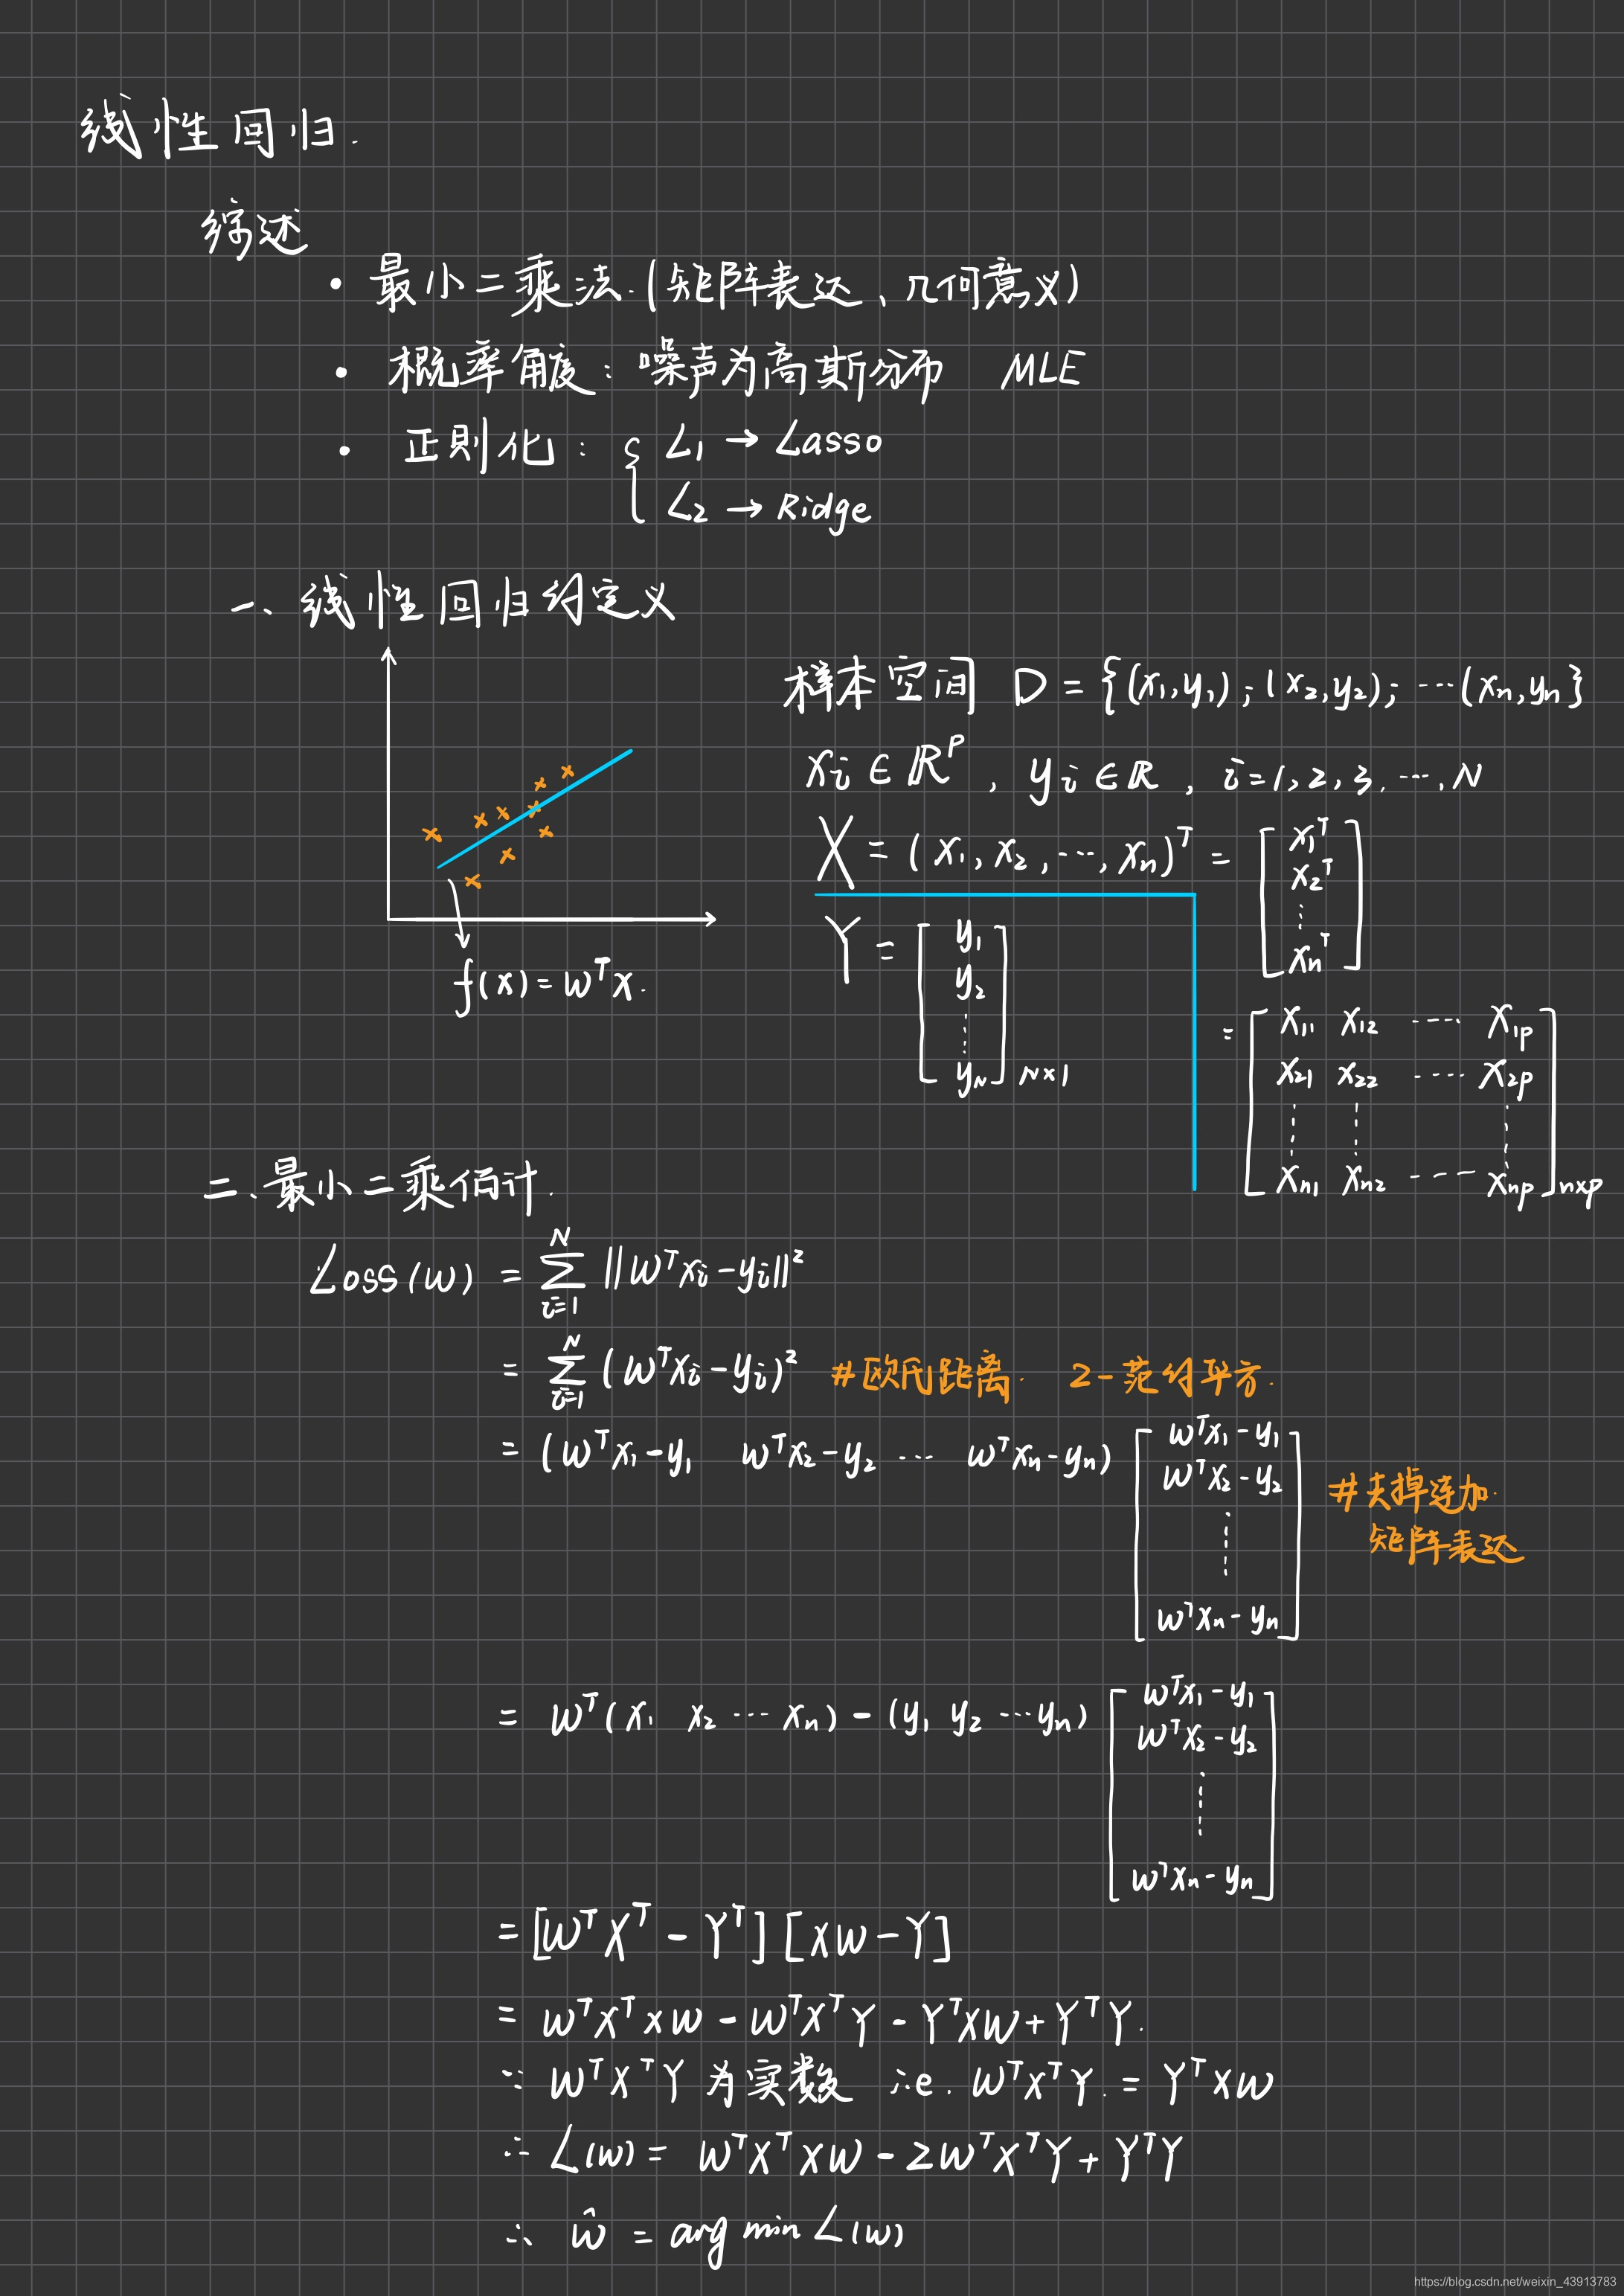 线性回归.
综述
· 最小二乘法.(矩阵表达、几何意义)
· 概率角度: 噪声为高斯分布 MLE
· 正则化: { L₁ → Lasso
L₂ → Ridge
一、线性回归的定义
样本空间 D = {(x₁,y₁);(x₂,y₂);…(xₙ,yₙ}
xᵢ ∈ ℝᴾ, yᵢ ∈ ℝ, i=1,2,3,…,N
X = (x₁,x₂,…,xₙ)ᵀ = [x₁ᵀ
x₂ᵀ
⋮
xₙᵀ]
f(x)=wᵀx.
Y = [y₁
y₂
⋮
y_N]N×1
= [x₁₁ x₁₂ …. x₁p
x₂₁ x₂₂ …. x₂p
⋮ ⋮ ⋮
xₙ₁ xₙ₂ …. xₙp]n×p
二.最小二乘估计.
Loss(w) = ∑ᵢ₌₁ᴺ ||wᵀxᵢ-yᵢ||²
= ∑ᵢ₌₁ᴺ (wᵀxᵢ-yᵢ)² #欧氏距离. 2-范的平方.
= (wᵀx₁-y₁ wᵀx₂-y₂ … wᵀxₙ-yₙ) [wᵀx₁-y₁
wᵀx₂-y₂
⋮
wᵀxₙ-yₙ]
#去掉连加.
矩阵表达
= wᵀ(x₁ x₂ … xₙ) - (y₁ y₂ … yₙ) [wᵀx₁-y₁
wᵀx₂-y₂
⋮
wᵀxₙ-yₙ]
= [wᵀXᵀ - Yᵀ] [Xw - Y]
= wᵀXᵀXw - wᵀXᵀY - YᵀXw + YᵀY.
∵ wᵀXᵀY 为实数 i.e. wᵀXᵀY. = YᵀXw
∴ L(w) = wᵀXᵀXw - 2wᵀXᵀY + YᵀY
∴ ŵ = arg min L(w)
https://blog.csdn.net/weixin_43913783